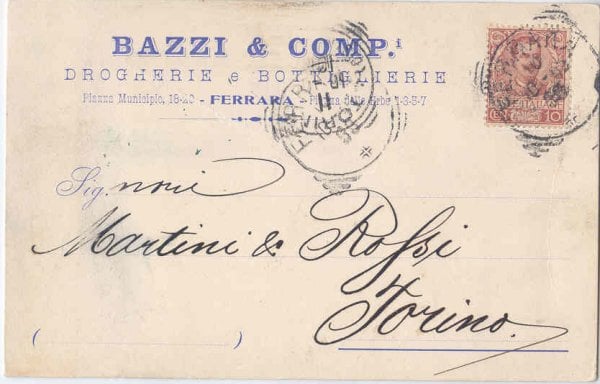 BAZZI & COMP.i
DROGHERIE e BOTTIGLIERIE
Piazza Municipio, 18-20 - FERRARA - Piazza delle Erbe 1-3-5-7
FERRARA
Sig. nori
Martini & Rossi
Torino.
( )